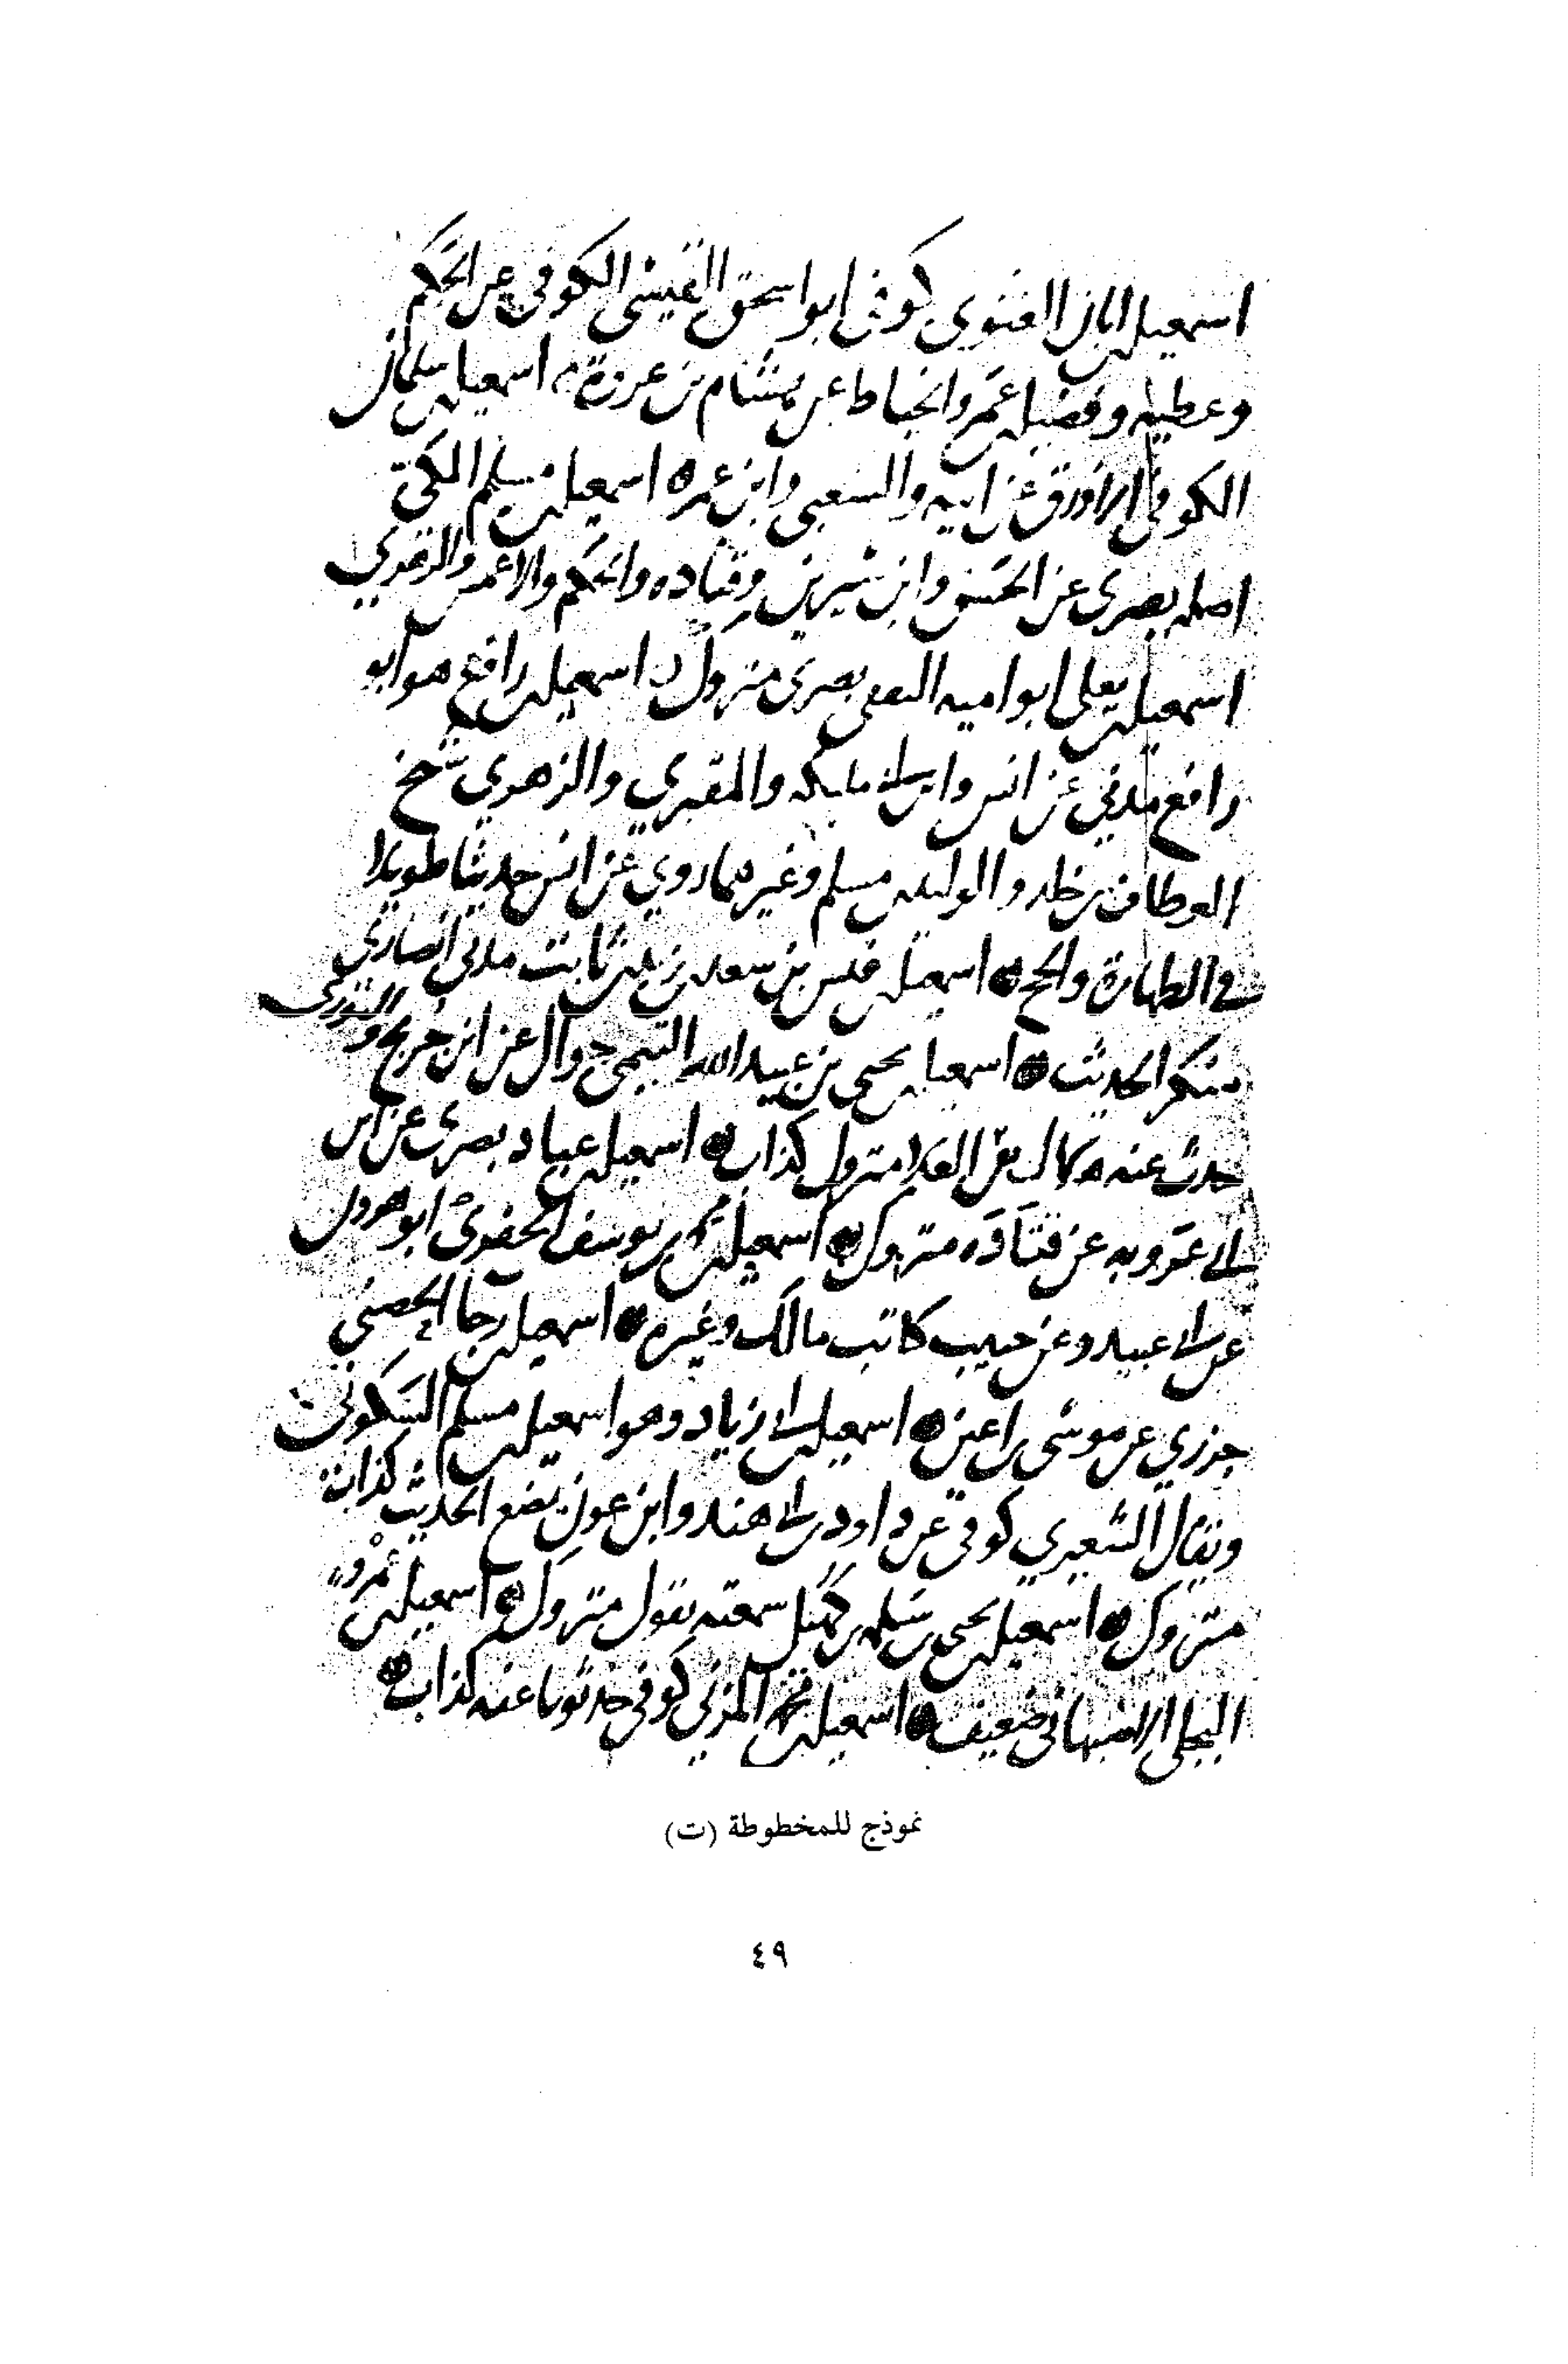 اسمعيل بن ابان الغنوي كوفي ابو اسحق القيسي الكوفي عن الحكم
وعطيه وفضيل بن عمرو الخياط عن هشام بن عروة اسمعيل بن سلمان
الكوفي الازرق عن ابيه والشعبي وابن عمر اسمعيل بن مسلم المكي
اصله بصري عن الحسن وابن سيرين وقتاده والحكم والاعمش والزهري
اسمعيل بن يعلى ابو اميه الثقفي بصري متروك اسمعيل بن رافع هو ابو
رافع مدني عن انس وابن ابي مليكه والمقبري والزهري
العطاف بن خالد والوليد بن مسلم وغيرهما روي عن انس حديثا طويلا
في الطهارة والحج اسمعيل بن قيس بن سعد بن زيد بن ثابت مدني انصاري
منكر الحديث اسمعيل بن يحيى بن عبيد الله التيمي عن ابن جريج والثوري
حدث عنه متروك كذاب اسمعيل بن عباد بصري عن ابن
ابي عروبه عن قتاده متروك اسمعيل بن محمد بن يوسف ابو هرون
عن ابي عبيد وعن حبيب كاتب مالك وغيره اسمعيل بن رجا الحصني
جزري عن موسى بن اعين اسمعيل بن ابي زياد وهو اسمعيل بن مسلم السكوني
ويقال الشعيري كوفي عن داود بن ابي هند وابن عون يضع الحديث كذاب
متروك اسمعيل بن يحيى بن سلمه بن كهيل سمعته يقول متروك اسمعيل بن عمرو
البجلي الاصبهاني ضعيف اسمعيل بن محمد المزني كوفي حدثونا عنه كذاب
نموذج للمخطوطة (ت)
٤٩